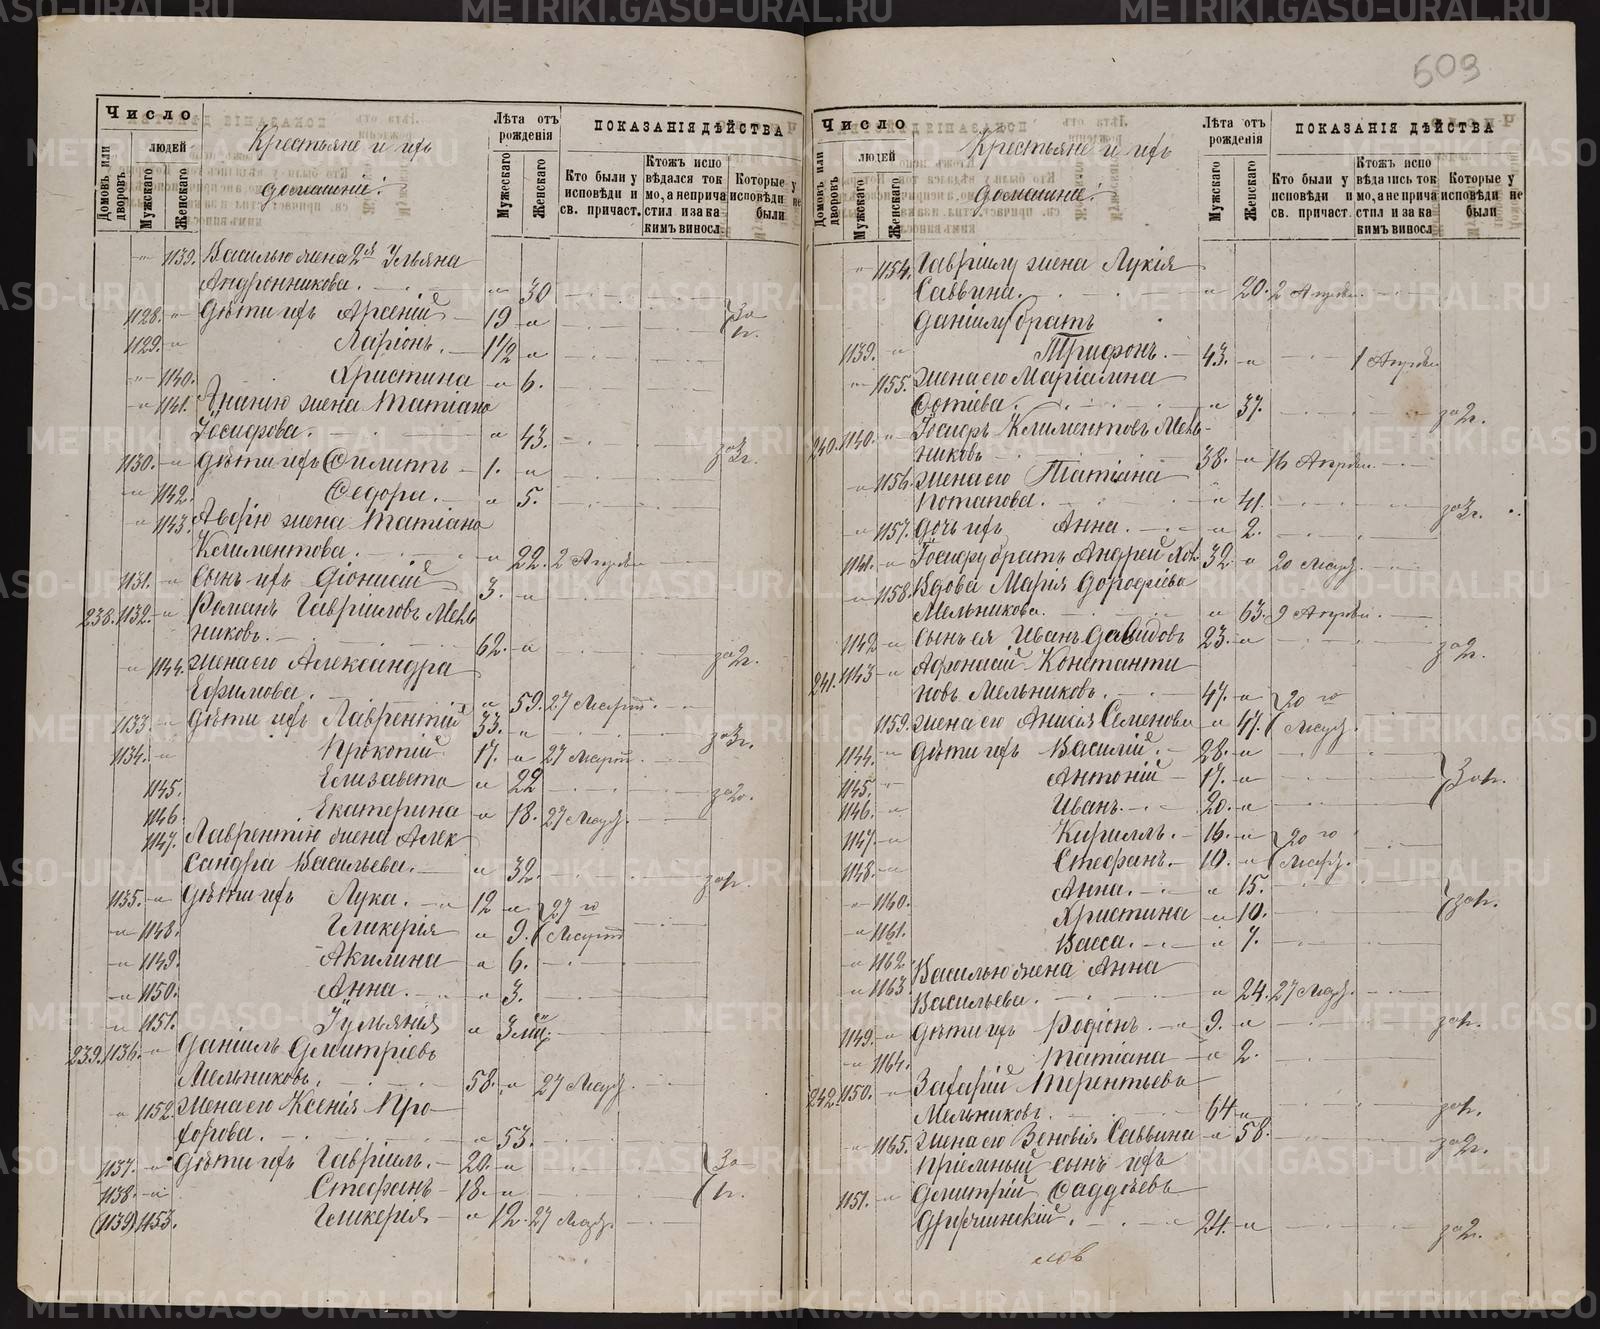 609
Число
Домовъ или дворовъ.
людей
Мужскаго
Женскаго
Крестьяне и ихъ
домашніе:
Лѣта отъ рожденія
Мужескаго
Женскаго
ПОКАЗАНІЯ ДѢЙСТВА
Кто были у исповѣди и св. причаст.
Ктожъ испо вѣдался ток мо, а неприча стил и за ка кимъ виносл
Которые у исповѣди не были
1139. Василью жена 2я Ульяна
Андронникова. 30
1128. Дѣти ихъ Арсеній 19 За 1г.
1129. Ларіонъ. 1 1/2
1140. Христина 6.
1141. Ананію жена Татіана
Іосифова. 43. за 3г.
1130. Дѣти ихъ Филиппъ 1.
1142. Федора. 5.
1143. жена Татіана
Климентова. 22. 2 Апрѣля
1131. Сынъ ихъ Діонисій 3.
238. 1132. Романъ Гавріиловъ Мель
никовъ. 62. за 2г.
1144. Жена его Александра
Ефимова. 59. 27 Марта.
1133. Дѣти ихъ Лаврентій 33. за 3г.
1134. Прокопій 17. 27 Марта.
1145. Елизавета 22 за 2г.
1146. Екатерина 18. 27 Мар.
1147. Лаврентію жена Алек
сандра Васильева. 32. за 1г.
1135. Дѣти ихъ Лука. 12 27 го
1148. Гликерія 9. Марта
1149. Акилина 6.
1150. Анна. 3.
1151. Іульянія 3 мѣс.
239. 1136. Даніилъ Дмитріевъ
Мельниковъ. 58. 27 Мар.
1152. Жена его Ксенія Про
хорова. 53.
1137. Дѣти ихъ Гавріилъ. 20. За
1138. Стефанъ 18. 1г.
(1139) 1153. Гликерия 12. 27 Мар.
Число
Домовъ или дворовъ.
людей
Мужскаго
Женскаго
Крестьяне и ихъ
домашніе:
Лѣта отъ рожденія
Мужскаго
Женскаго
ПОКАЗАНІЯ ДѢЙСТВА
Кто были у исповѣди и св. причаст.
Ктожъ испо вѣдались ток мо, а не прича стил и за ка кимъ виносл
Которые у исповѣди не были
1154. Гавріилу жена Лукія
Саввина. 20. 2 Апрѣля.
Даніилу братъ
1139. Трифонъ. 43. 1 Апрѣля
1155. Жена его Маріамна
Фотіева. 37. за 2г.
240. 1140. Іосифъ Климентовъ Мель-
никовъ 38. 16 Апрѣля.
1156. Жена его Татіана
Потапова. 41. за 3г.
1157. Дочь ихъ Анна. 2.
1141. Іосифу братъ Андрей 32. 20 Мар.
1158. Вдова Марія Дорофіева
Мельникова. 63. 9 Апрѣля.
1142 Сынъ ея Иванъ Давидовъ 23. за 2г.
241. 1143 Афонасій Константи
новъ Мельниковъ. 47. 20 го
1159. Жена его Анисія Семенова 47. Мар.
1144. Дѣти ихъ Василій. 28.
1145. Антоній 17. За 1г.
1146. Иванъ. 20.
1147. Кириллъ. 16. 20 го
1148. Стефанъ. 10. Мар.
1160. Анна. 15.
1161. Христина 10. за 1г.
1162 Васса. 7.
1163 Василью жена Анна
Васильева. 24. 27 Мар.
1149. Дѣти ихъ Родіонъ. 9. за 1г.
1164. Татіана 2.
242. 1150. Захарій Терентьевъ
Мельниковъ. 64 за 1г.
1165. Жена его Зеновія Саввина 58. за 2г.
Пріемный сынъ ихъ
1151. Дмитрій Фаддѣевъ
24. за 2г.